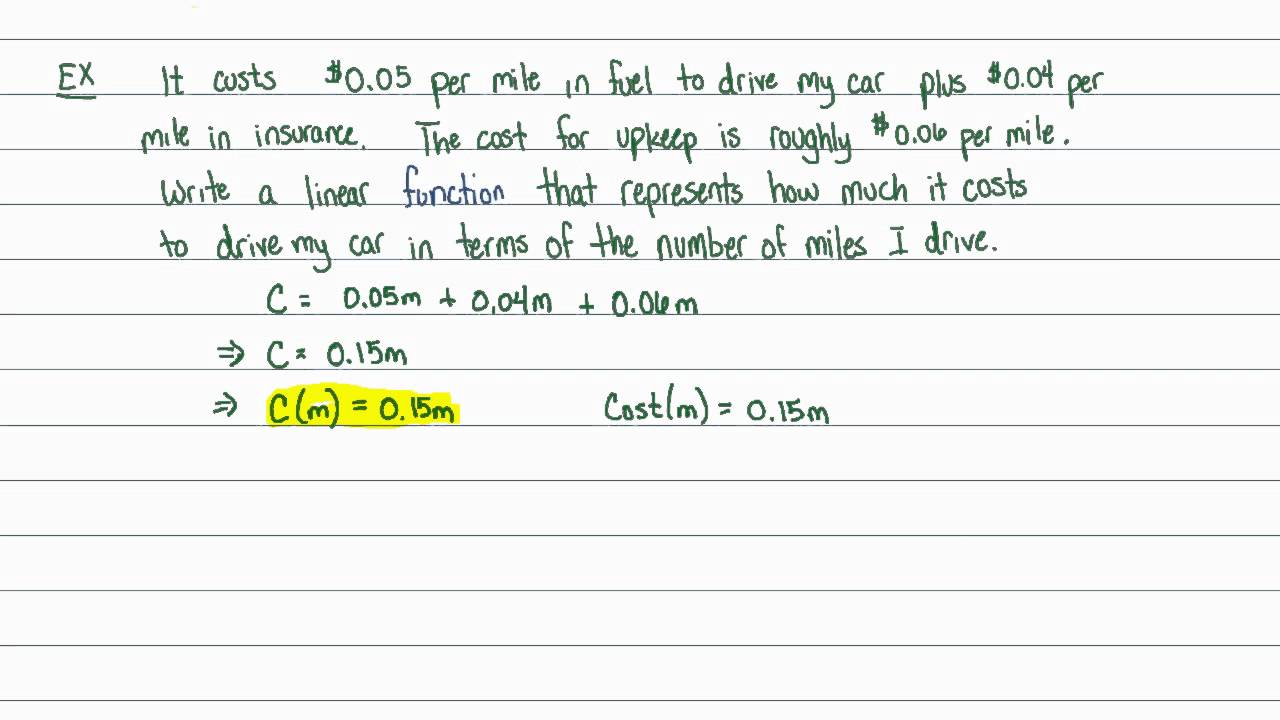 EX It costs $0.05 per mile in fuel to drive my car plus $0.04 per
mile in insurance. The cost for upkeep is roughly $0.06 per mile.
Write a linear function that represents how much it costs
to drive my car in terms of the number of miles I drive.
C = 0.05m + 0.04m + 0.06m
⇒ C = 0.15m
⇒ C(m) = 0.15m Cost(m) = 0.15m